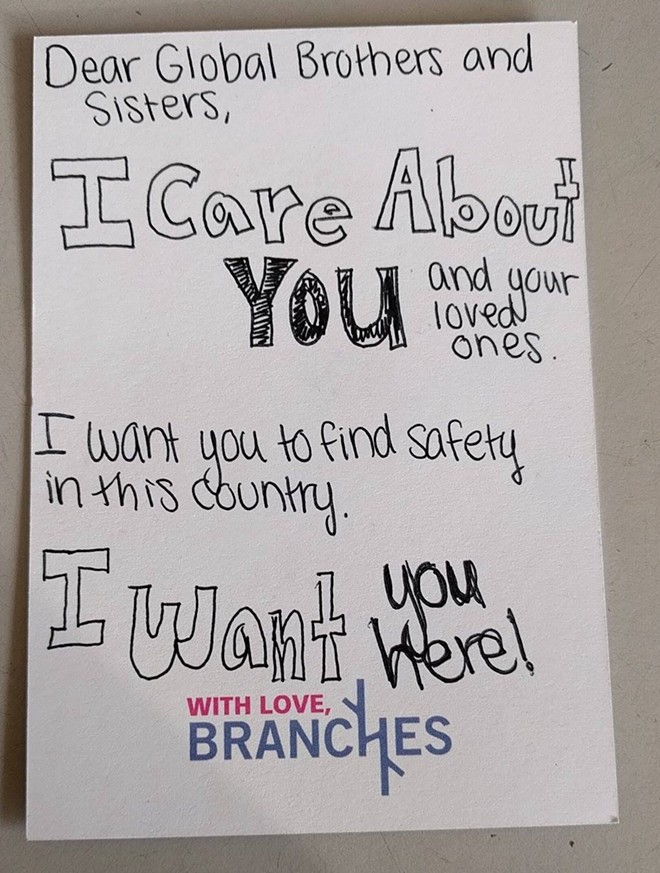 Dear Global Brothers and
Sisters,
I Care About
You and your
loved
ones.
I want you to find safety
in this country.
I Want you
Here!
WITH LOVE,
BRANCHES